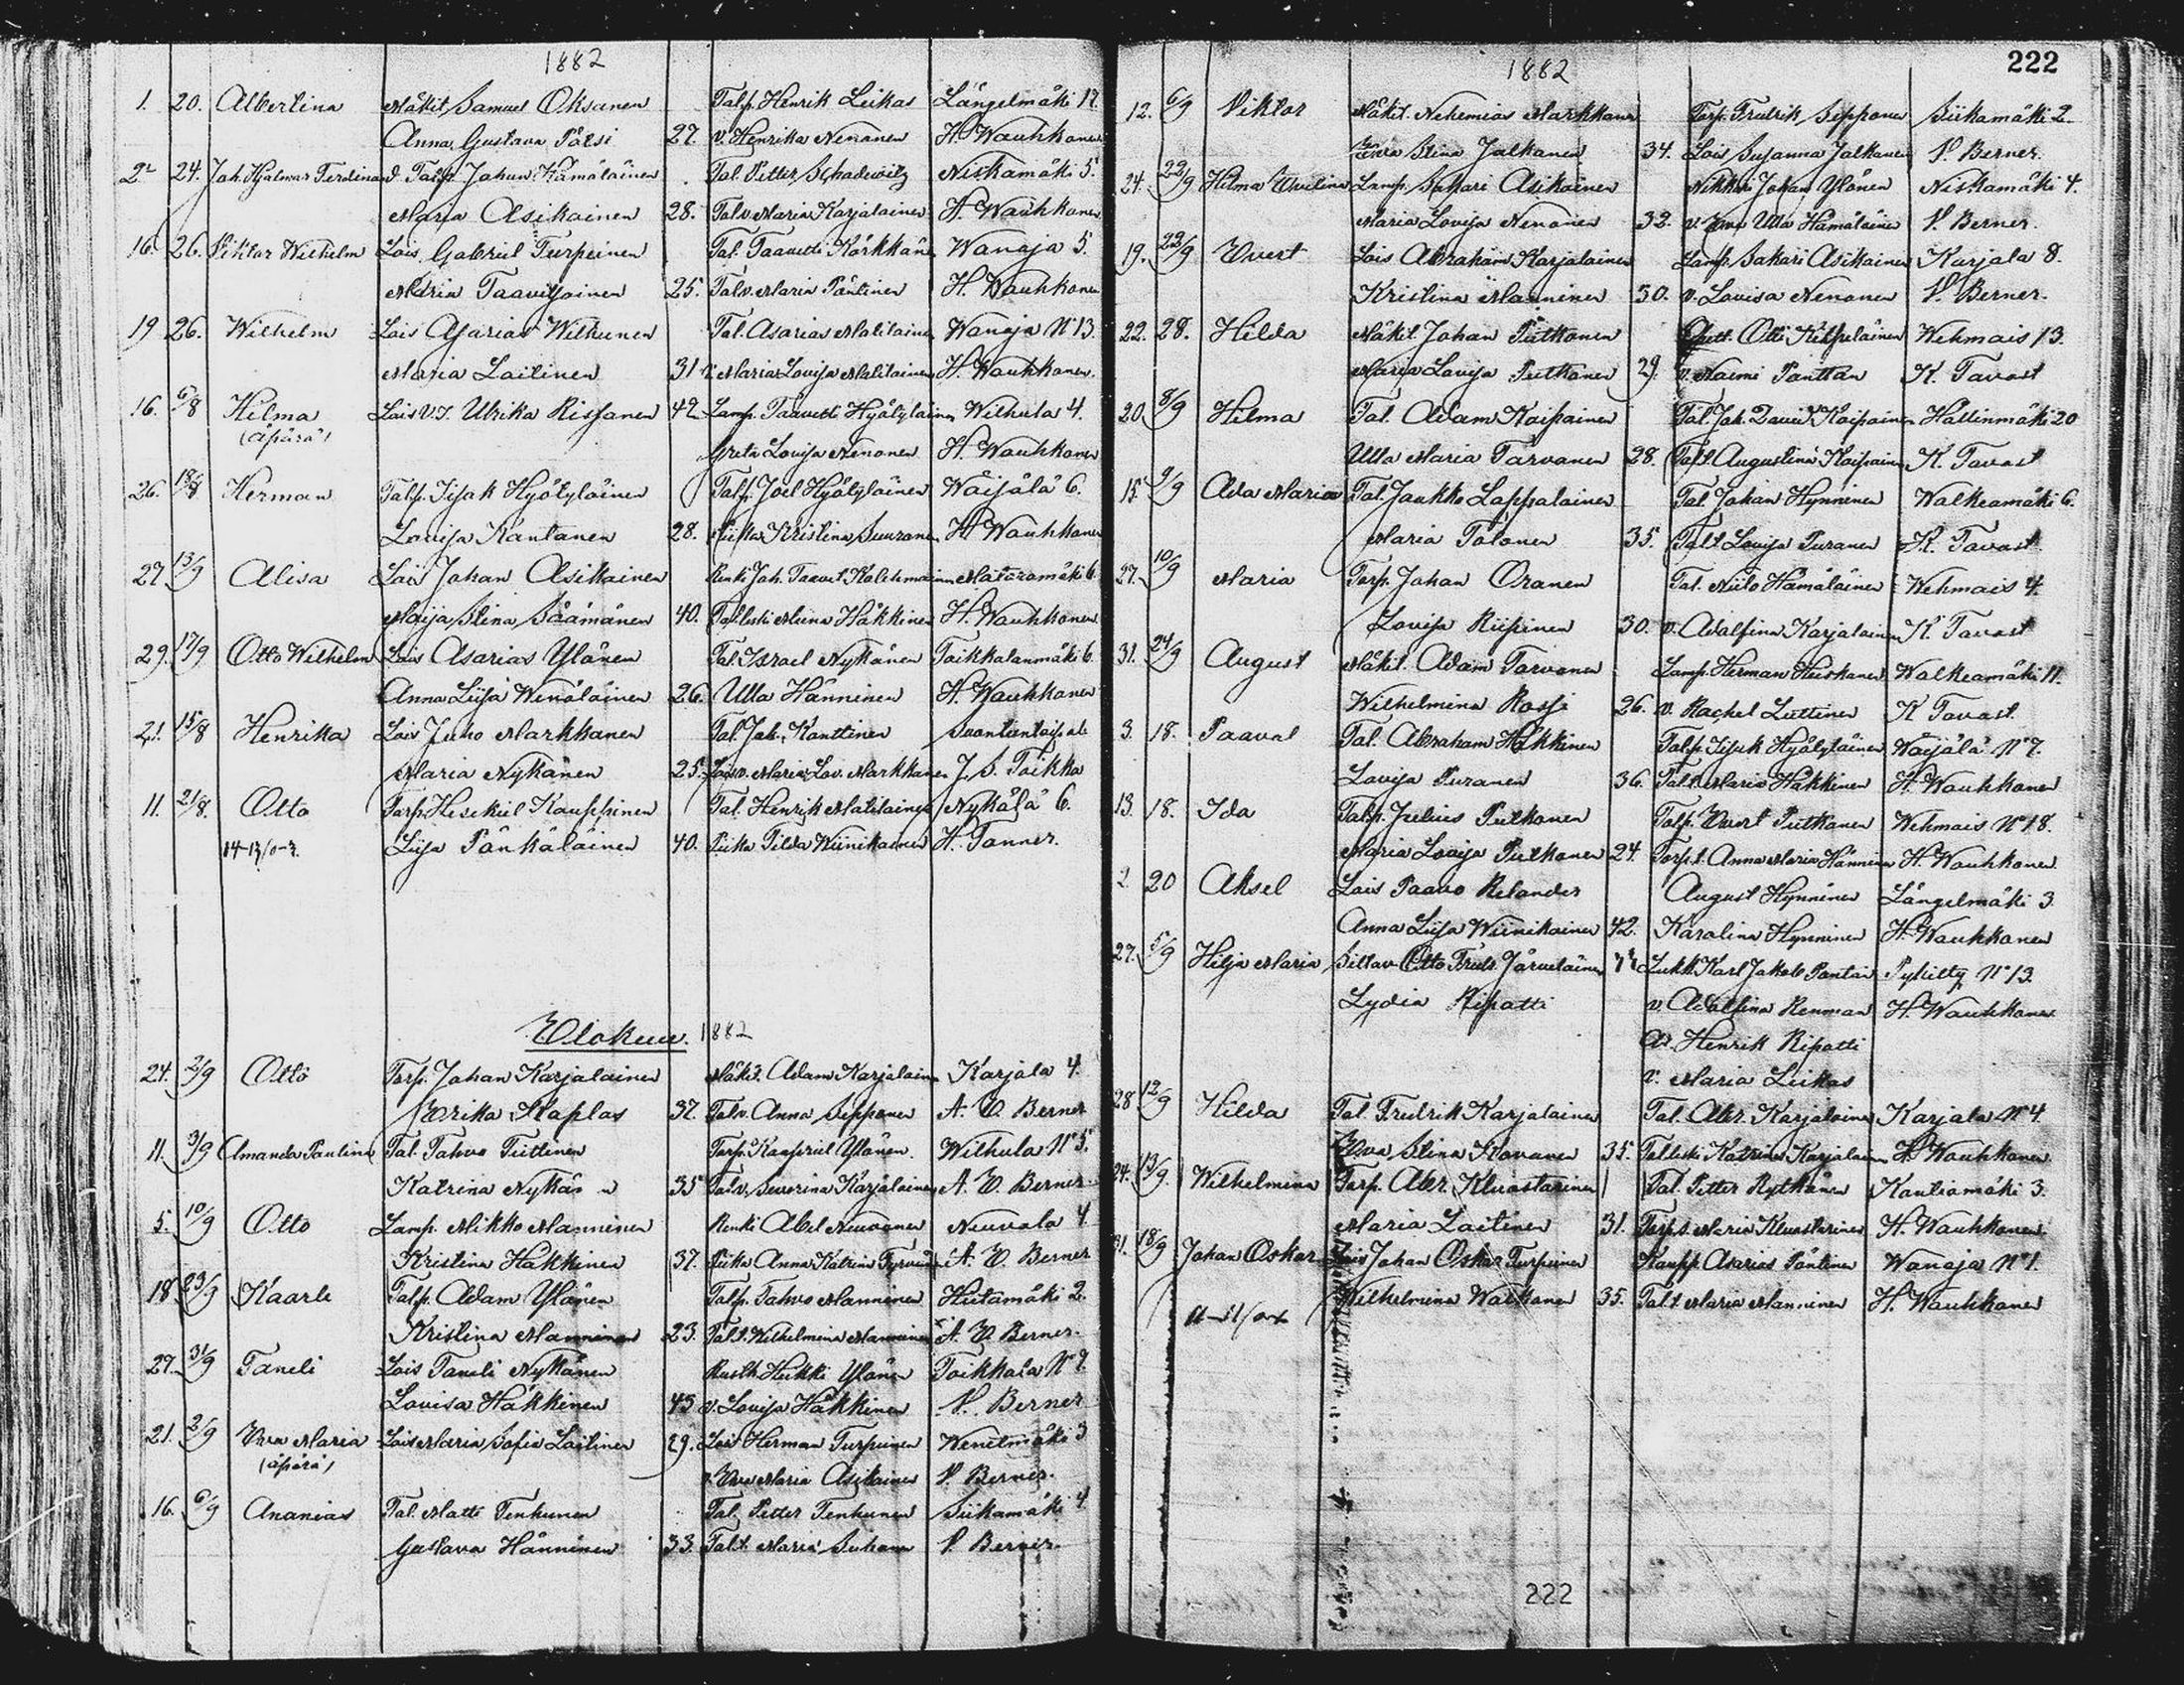 1882
1. 20. Albertina Mäkit. Samuel Oksanen Talp. Henrik Leikas Längelmäki 17.
Anna Gustava Pätsi 27. v. Henrika Nenonen H. Wauhkonen
24. Joh. Hjalmar Ferdinand Talp. Johan Hämäläinen Tal. Petter Schadewitz Niskamäki 5.
Maria Asikainen 28. Talv. Maria Karjalainen H. Wauhkonen
16. 26. Viktor Wilhelm Lois Gabriel Turpeinen Tal. Taavetti Kärkkäne Wanaja 5.
Maria Taavitsainen 25. Talv. Maria Päntinen H. Wauhkonen
19 26. Wilhelm Lois Asarias Wilkunen Tal. Asarias Matilainen Wanaja No 13.
Maria Laitinen 31 v. Maria Lovisa Matilainen H. Wauhkonen.
16. 6/8 Hilma Lois v.t. Ulrika Rissanen 42 Lamp. Taavetti Hyötyläinen Wilhula 4.
(äpärä) Greta Lovisa Nenonen H. Wauhkonen
26. Herman Talp. Iisak Hyötyläinen Talp. Joel Hyötyläinen Wäisälä 6.
Lovisa Kantanen 28. Piika Kristina Suuronen H. Wauhkonen
27. 13/9 Alisa Lois Johan Asikainen Renki Joh. Taavet Kolehmainen Mataramäki 6.
Maija Stina Säämänen 40. Tal.leski Miina Häkkinen H. Wauhkonen
29. 17/9 Otto Wilhelm Lois Asarias Ylönen Tal. Israel Nykänen Toikkalanmäki 6.
Anna Liisa Wenäläinen 26. Ulla Hänninen H. Wauhkonen
21. 15/8 Henrika Lois Juho Markkanen Tal. Joh. Konttinen Suontientaipale
Maria Nykänen 25. Lois v. Maria Lov. Markkanen J. S. Toikka
11. 21/8. Otto Torp. Hesekiel Kauppinen Tal. Henrik Matilainen Nykälä 6.
Liisa Pänkäläinen 40. Piika Tilda Wiinikainen H. Tanner.
Elokuu. 1882
24. 2/9 Otto Torp. Johan Karjalainen Mäkit. Adam Karjalainen Karjala 4.
Erika Kaplas 37. Talv. Anna Sepponen A. W. Berner
11. 3/9 Amanda Paulina Tal. Tahvo Tiittinen Torp. Kaapriel Ylönen. Wilhula No 5.
Katrina Nykän n 35 Talv. Severina Karjalainen A. W. Berner.
5. 10/9 Otto Lamp. Mikko Manninen Renki Abel Neuvonen Neuvola 4.
Kristina Häkkinen 37. Piika Anna Katrina A. W. Berner
18 23/9 Kaarle Talp. Adam Ylönen Talp. Tahvo Manninen Hietamäki 2.
Kristina Manninen 23. Tal.t. Wilhelmina Manninen A. W. Berner.
27. 31/9 Taneli Lois Taneli Nykänen Rusth. Heikki Ylönen Toikkala No 9.
Lovisa Häkkinen 45 v. Lovisa Häkkinen V. Berner
21. 2/9 Eeva Maria Lois Maria Sofia Laitinen 29. Lois Herman Turpeinen Wenetmäki 3
(äpärä) v. Eeva Maria Asikainen V. Berner.
16. 6/9 Ananias Tal. Matti Tenhunen Tal. Petter Tenhunen Siikamäki 4.
Gustava Hänninen 33. Tal.t. Maria Suhonen V. Berner.
222
1882
12. 6/9 Viktor Mäkit. Nehemias Markkanen Torp. Fredrik Sepponen Siikamäki 2.
Eeva Stina Jalkanen 34. Lois Susanna Jalkanen V. Berner.
24. 22/9 Hilma Evelina Lamp. Sakari Asikainen Nikkari Johan Ylönen Niskamäki 4.
Maria Lovisa Nenonen 32. v. Eeva Ulla Hämäläinen V. Berner.
19. 23/9 Evert Lois Abraham Karjalainen Lamp. Sakari Asikainen Karjala 8.
Kristina Manninen 30. v. Lovisa Nenonen V. Berner.
22. 28. Hilda Mäkit. Johan Putkonen Otto Kilpeläinen Wehmais 13.
Maria Lovisa Putkonen 29. v. Naemi Panttan K. Tavast
20. 8/9 Hilma Tal. Adam Kaipainen Tal. Joh. David Kaipainen Hällinmäki 20
Ulla Maria Tarvonen 28. Tal.t. Augustina Kaipainen K. Tavast
15. 9/9 Ada Maria Tal. Jaakko Lappalainen Tal. Johan Hynninen Walkeamäki 6.
Maria Polonen 35. Tal.t. Lovisa Puranen K. Tavast.
27. 10/9 Maria Torp. Johan Oranen Tal. Niilo Hämäläinen Wehmais 4.
Lovisa Riipinen 30. v. Adolfina Karjalainen K. Tavast
31. 24/9 August Mäkit. Adam Tarvonen Lamp. Herman Heiskanen Walkeamäki 11.
Wilhelmina Rossi 26. v. Rachel Luttinen K. Tavast.
3. 18. Paaval Tal. Abraham Häkkinen Talp. Iisak Hyötyläinen Wäisälä No 7.
Lovisa Puranen 36. Tal.t. Maria Häkkinen H. Wauhkonen
13. 18. Ida Talp. Julius Putkonen Talp. Evert Putkonen Wehmais No 18.
Maria Lovisa Putkonen 24. Torp.t. Anna Maria Hänninen H. Wauhkonen
2. 20 Aksel Lois Paavo Relander August Hynninen Längelmäki 3.
Anna Liisa Wiinikainen 42. Karolina Hynninen H. Wauhkonen
27. 5/9 Hilja Maria Siltav. Otto Fredr. Järveläinen Lukk. Karl Jakob Pantai Pykitty No 13.
Lydia Ripatti v. Adolfina Renman H. Wauhkonen
Henrik Ripatti
v. Maria Leikas
28 12/9 Hilda Tal. Fredrik Karjalainen Tal. Abr. Karjalainen Karjala No 4.
Eeva Stina Kovanen 35. Tal.leski Katrina Karjalainen H. Wauhkonen
24. 13/9. Wilhelmina Torp. Abr. Kluastarinen Tal. Petter Rytkönen Kantiamäki 3.
Maria Laitinen 31. Torp.s. Maria Kluastarinen H. Wauhkonen.
31. 18/9 Johan Oskar Lois Johan Oskar Turpeinen Kaupp. Asarias Päntinen Wanaja No 1.
Wilhelmina Watkanen 35. Tal.t. Maria Manninen H. Wauhkonen
222